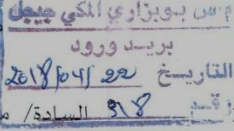 م.س بوبزاري المكي جيجل
بريد ورود
التاريخ 2018/04/22
رقم 318 السادة/